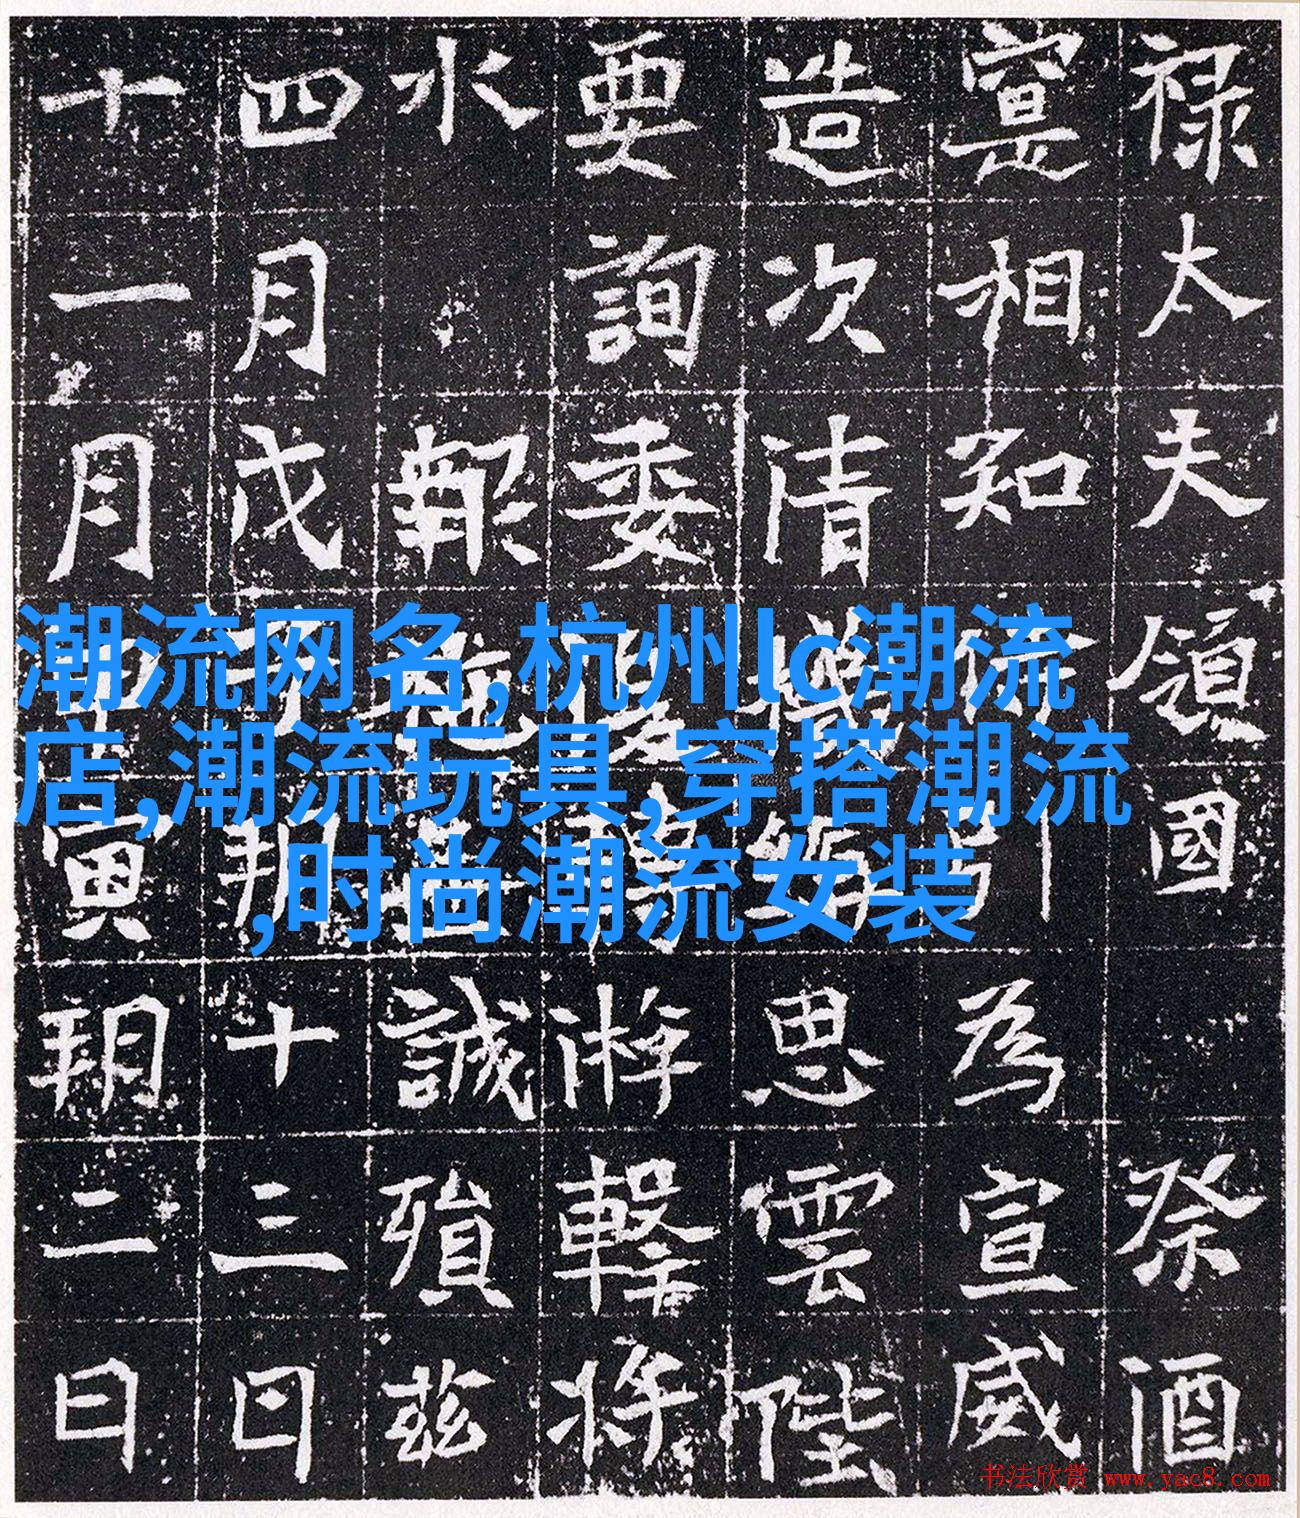 禄太夫領國祭酒
寔相知為宣威
造次清思雲陛
要詢委游擊将
水報施誠殞茲
四月戊朔十三日
十一月寅朔二日
潮流网名,杭州lc潮流
店,潮流玩具,穿搭潮流
,时尚潮流女装
书法欣赏 www.yac8.com